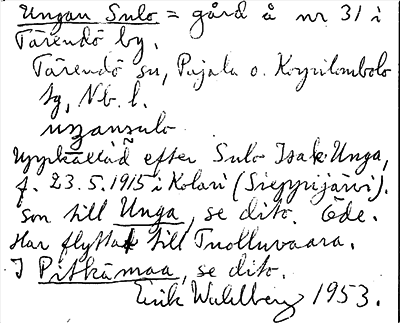 Ungan Sulo = gård å nr 31 i
Tärendö by.
Tärendö sn, Pajala o. Korpilombolo
tg, Nb. l.
uŋŋansulo
Uppkallad efter Sulo Isak Unga,
f. 23.5.1915 i Kolari (Sieppijärvi).
Son till Unga, se dito. Öde.
Har flyttat till Tuolluvaara.
I Pitkämaa, se dito.
Erik Wahlberg 1953.